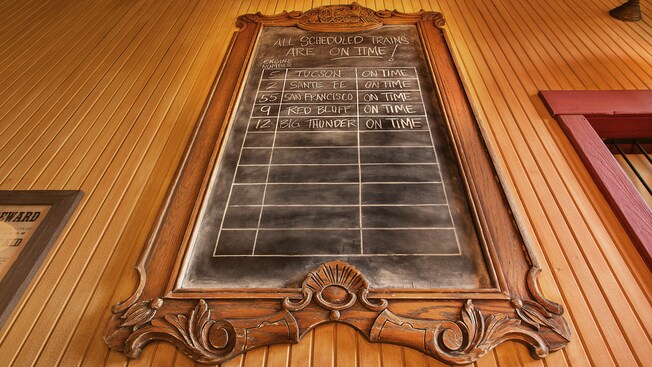 ALL SCHEDULED TRAINS
ARE ON TIME!
ENGINE
NUMBER
5 TUCSON ON TIME
2 SANTE FE ON TIME
55 SAN FRANCISCO ON TIME
9 RED BLUFF ON TIME
12 BIG THUNDER ON TIME
EWARD